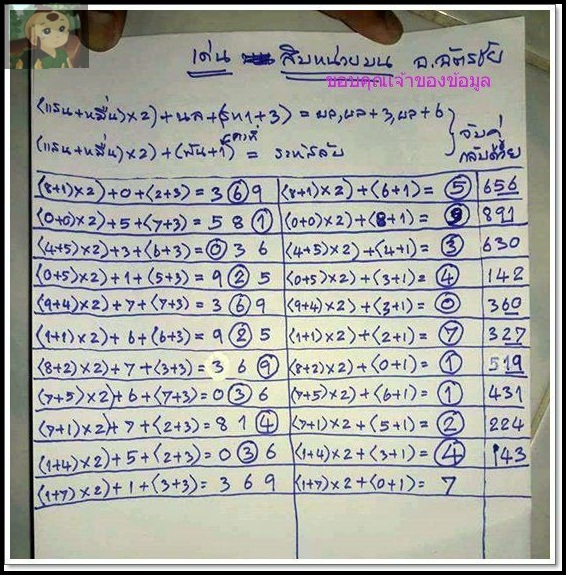 เด่น สิบหน่วยบน อ.ฉัตรชัย
ขอบคุณเจ้าของข้อมูล
(แสน+หมื่น)×2)+ + = ผล, ผล+3, ผล+6
(แสน+หมื่น)×2)+(พัน+1) =
จับคู่
กลับด้วย
(8+1)×2)+0+(2+3)= 3 6 9 (8+1)×2)+(6+1)= 5 656
(0+0)×2)+5+(7+3)= 5 8 1 (0+0)×2)+(8+1)= 9 891
(4+5)×2)+3+(6+3)= 0 3 6 (4+5)×2)+(4+1)= 3 630
(0+5)×2)+1+(5+3)= 9 2 5 (0+5)×2)+(3+1)= 4 142
(9+4)×2)+7+(7+3)= 3 6 9 (9+4)×2)+(3+1)= 0 360
(1+1)×2)+6+(6+3)= 9 2 5 (1+1)×2)+(2+1)= 7 327
(8+2)×2)+7+(3+3)= 3 6 9 (8+2)×2)+(0+1)= 1 519
(7+5)×2)+6+(7+3)= 0 3 6 (7+5)×2)+(6+1)= 1 431
(7+1)×2)+7+(2+3)= 8 1 4 (7+1)×2+(5+1)= 2 224
(1+4)×2)+5+(2+3)= 0 3 6 (1+4)×2+(3+1)= 4 143
(1+7)×2)+1+(3+3)= 3 6 9 (1+7)×2+(0+1)= 7